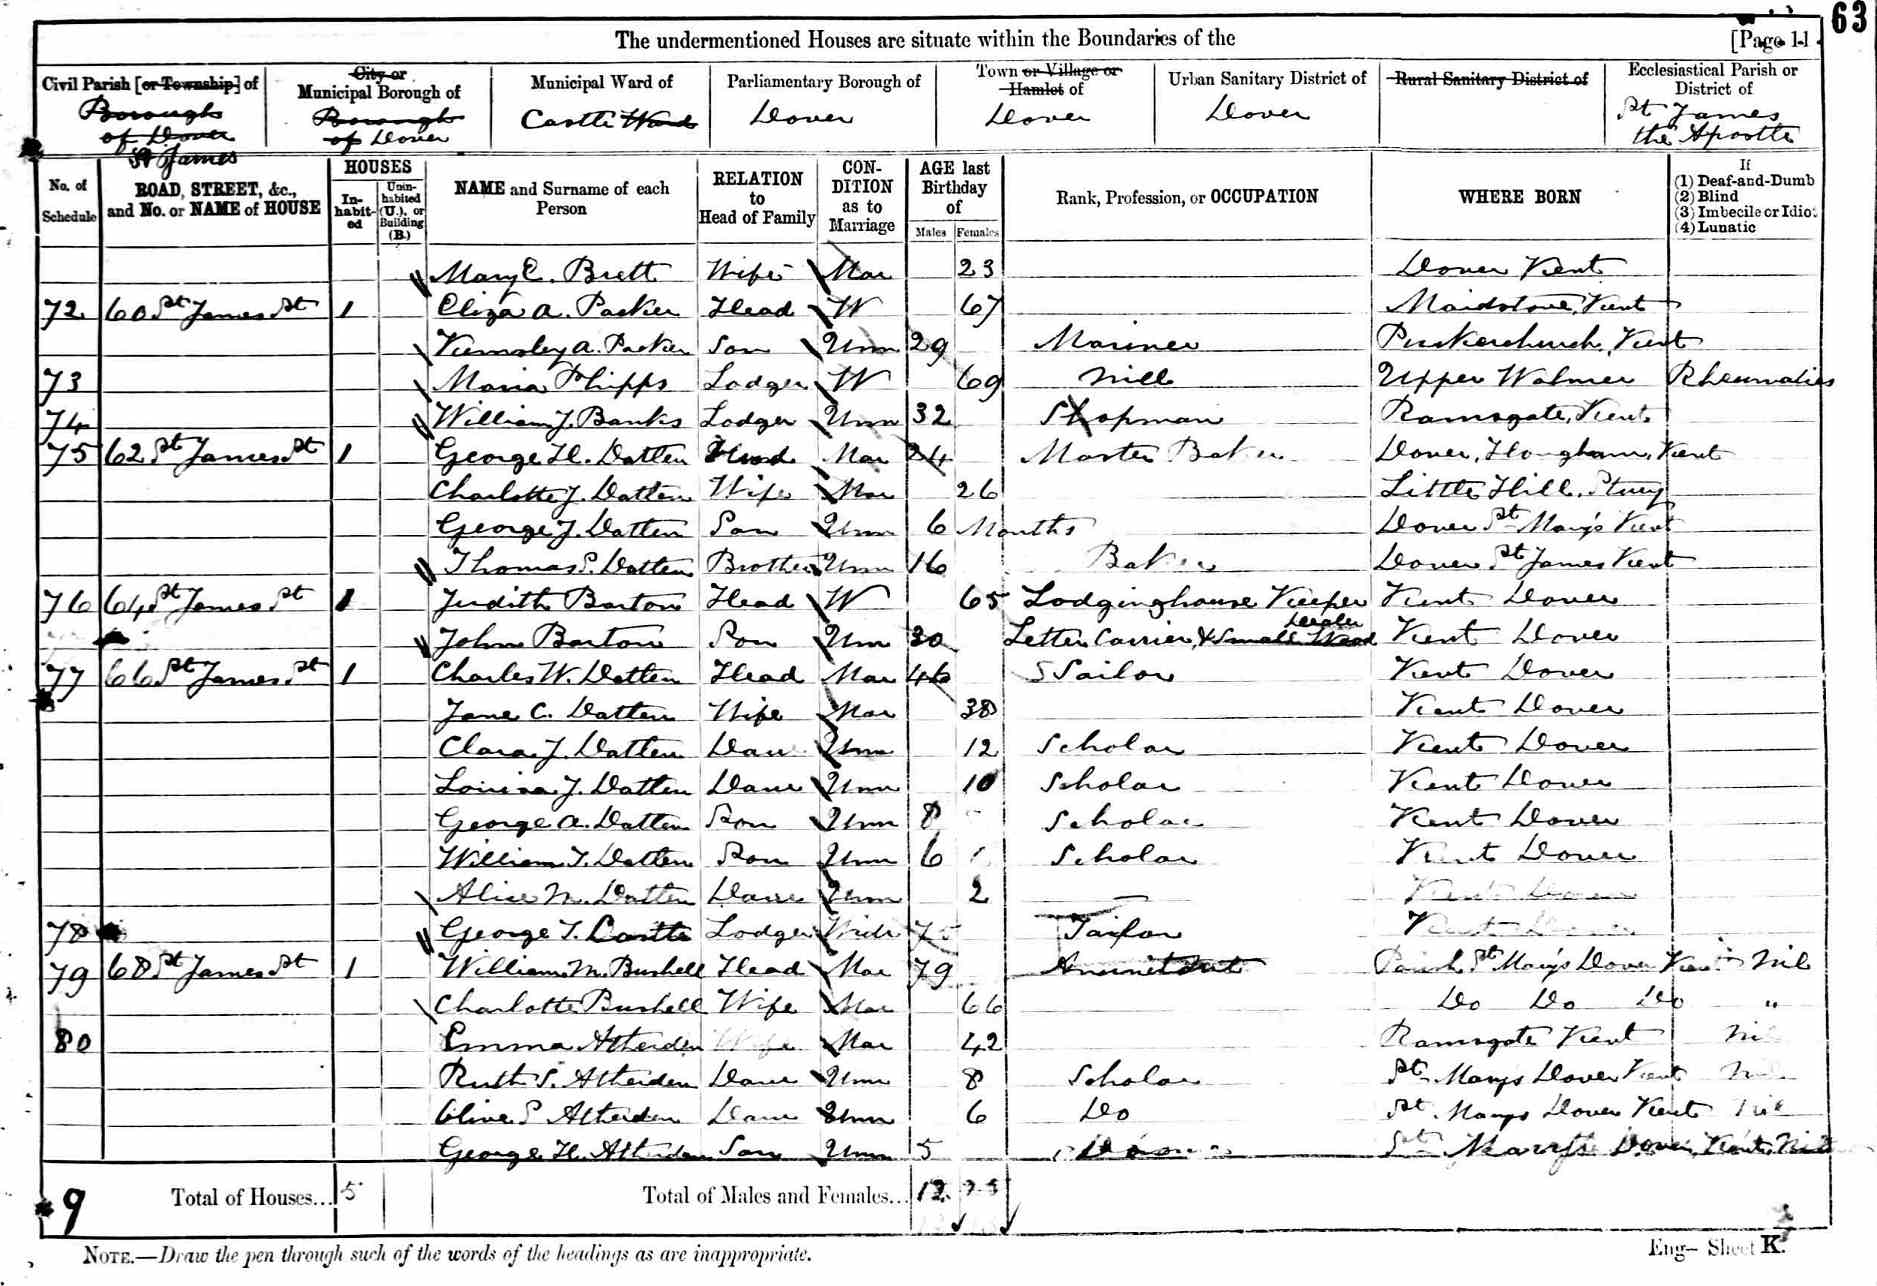 63
The undermentioned Houses are situate within the Boundaries of the [Page 11
Civil Parish [or Township] of Borough of Dover St James
City or Municipal Borough of Borough of Dover
Municipal Ward of Castle Ward
Parliamentary Borough of Dover
Town or Village or Hamlet of Dover
Urban Sanitary District of Dover
Rural Sanitary District of
Ecclesiastical Parish or District of St James the Apostle
No. of Schedule
ROAD, STREET, &c., and No. or NAME of HOUSE
HOUSES
In-habit-ed
Unin-habited (U.), or Building (B.)
NAME and Surname of each Person
RELATION to Head of Family
CON-DITION as to Marriage
AGE last Birthday of
Males Females
Rank, Profession, or OCCUPATION
WHERE BORN
If
(1) Deaf-and-Dumb
(2) Blind
(3) Imbecile or Idiot
(4) Lunatic
Mary E. Brett Wife Mar 23 Dover Kent
72 60 St James St 1 Eliza A. Parker Head W 67 Maidstone, Kent
A. Parker Son Unm 29 Mariner Kent
73 Maria Phipps Lodger W 69 Nill Upper Walmer Rheumatics
74 William J. Banks Lodger Unm 32 Shopman Ramsgate, Kent
75 62 St James St 1 George H. Datten Head Mar 24 Master Baker Dover, Hougham, Kent
Charlotte J. Datten Wife Mar 26 Little Hill, Stury
George J. Datten Son Unm 6 Months Dover St Mary's Kent
Thomas P. Datten Brother Unm 16 Baker Dover St James Kent
76 64 St James St 1 Judith Barton Head W 65 Lodginghouse Keeper Kent Dover
John Barton Son Unm 30 Letter Carrier & Small Wood Dealer Kent Dover
77 66 St James St 1 Charles W. Datten Head Mar 46 Sailor Kent Dover
Jane C. Datten Wife Mar 38 Kent Dover
Clara J. Datten Daur Unm 12 Scholar Kent Dover
Louisa J. Datten Daur Unm 10 Scholar Kent Dover
George A. Datten Son Unm 8 Scholar Kent Dover
William T. Datten Son Unm 6 Scholar Kent Dover
Alice M. Datten Daur Unm 2 Kent Dover
78 George T. Castle Lodger 75 Tailor Kent Dover
79 68 St James St 1 William M. Bushell Head Mar 79 Annuitant Parish St Mary's Dover Kent Nil
Charlotte Bushell Wife Mar 66 Do Do Do "
80 Emma Atherden Wife Mar 42 Ramsgate Kent Nil
Ruth S. Atherden Daur Unm 8 Scholar St Marys Dover Kent Nil
Olive P. Atherden Daur Unm 6 Do St Marys Dover Kent Nil
George H. Atherden Son Unm 5 St Marys Dover, Kent, Nil
9 Total of Houses... 5 Total of Males and Females... 12
NOTE.—Draw the pen through such of the words of the headings as are inappropriate.
Eng— Sheet K.